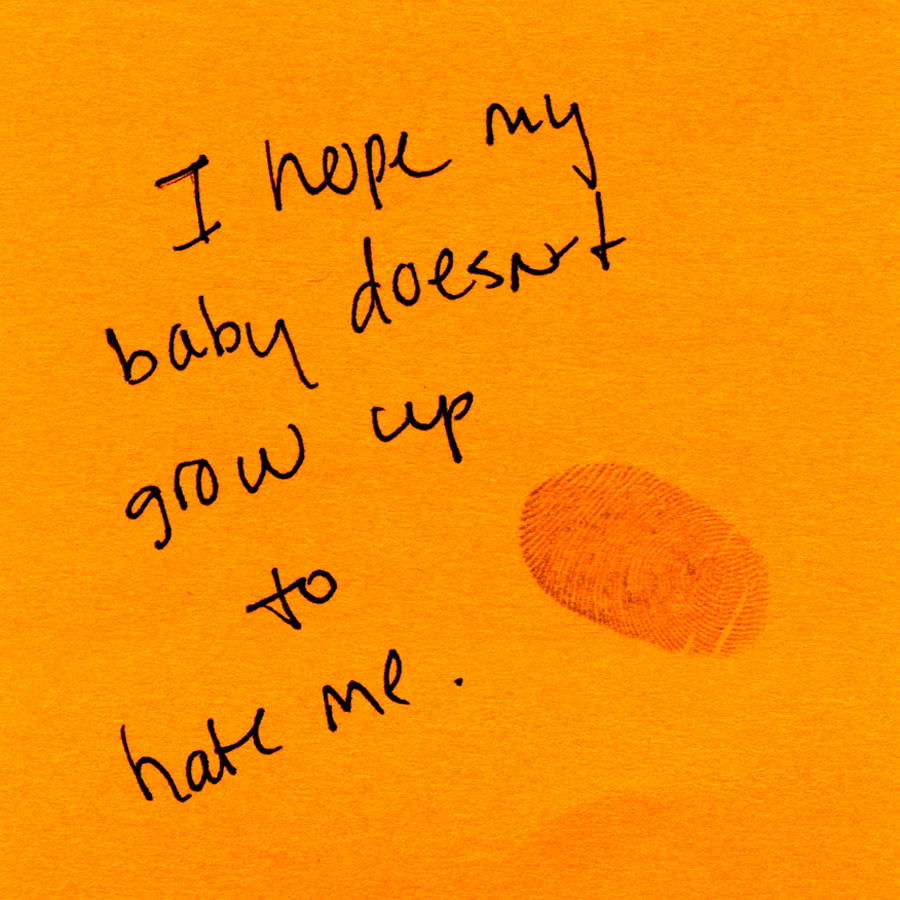 I hope my
baby doesn't
grow up
to
hate me.